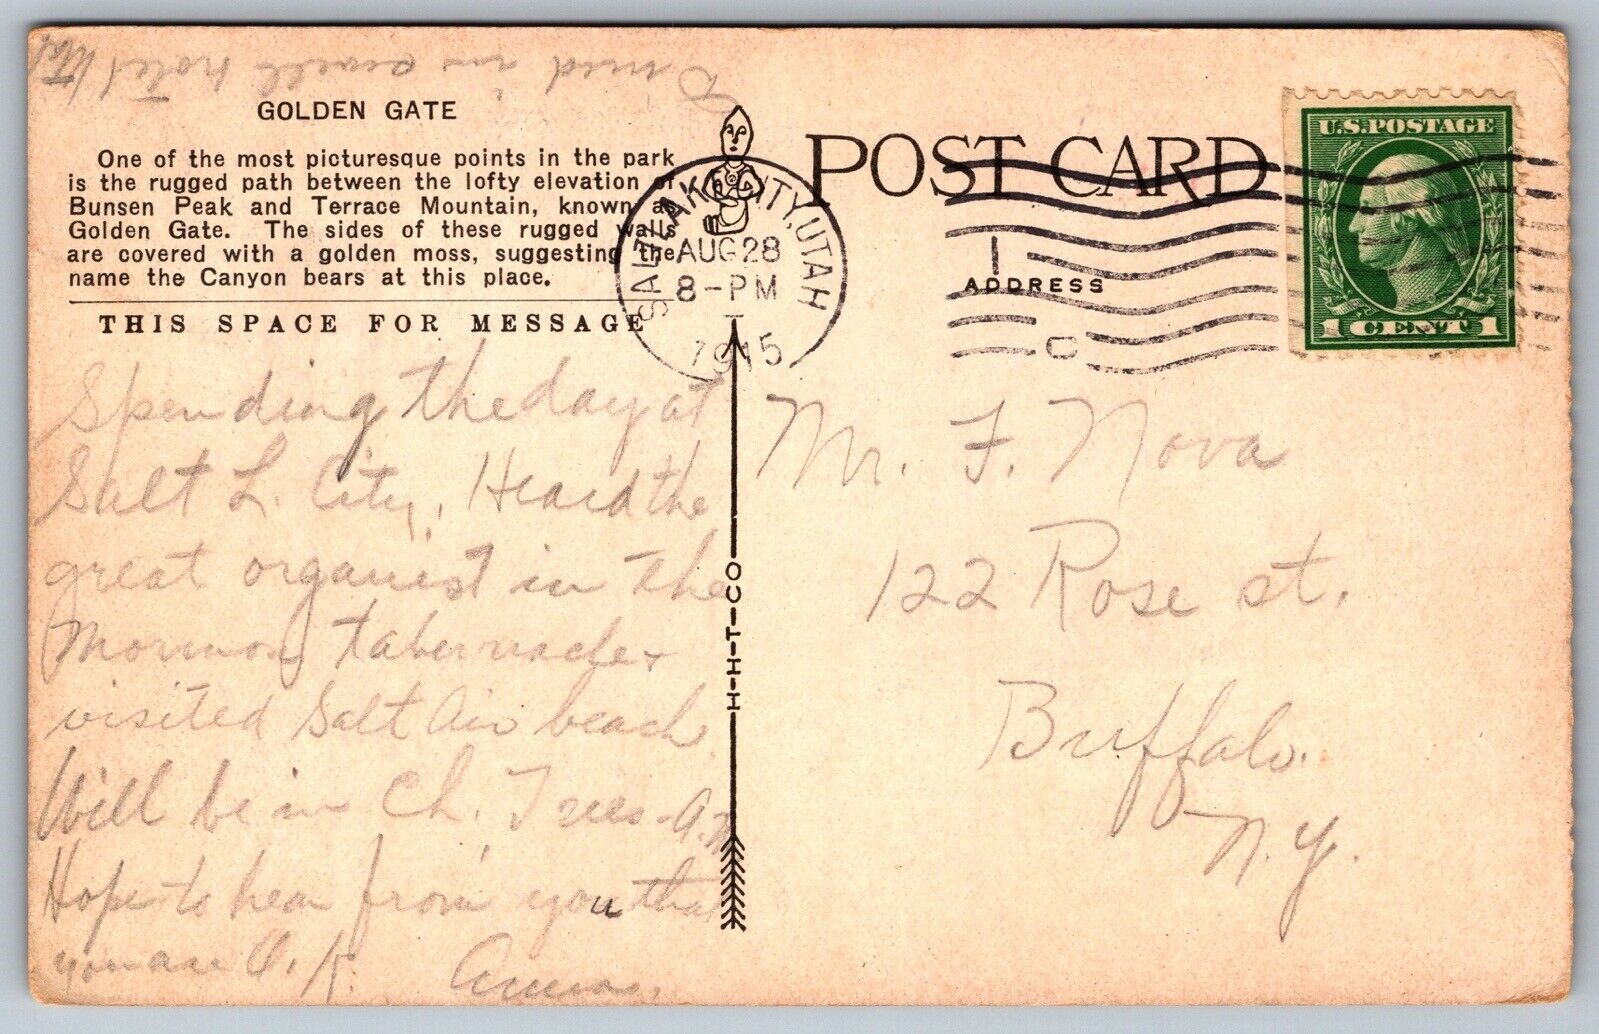 Dined in swell hotel Utah
GOLDEN GATE
One of the most picturesque points in the park
is the rugged path between the lofty elevation of
Bunsen Peak and Terrace Mountain, known as
Golden Gate. The sides of these rugged walls
are covered with a golden moss, suggesting the
name the Canyon bears at this place.
THIS SPACE FOR MESSAGE
Spending the day at
Salt L. City. Heard the
great organist in the
Mormon tabernacle +
visited Salt Air beach.
Will be in Ch. Tues. A.M.
Hope to hear from you that
you are O.K. Anna.
SALT LAKE CITY, UTAH
AUG 28
8-PM
1915
H-H-T-CO
POST CARD
ADDRESS
U.S. POSTAGE
1 CENT 1
Mr. F. Nova
122 Rose st.
Buffalo.
N.Y.